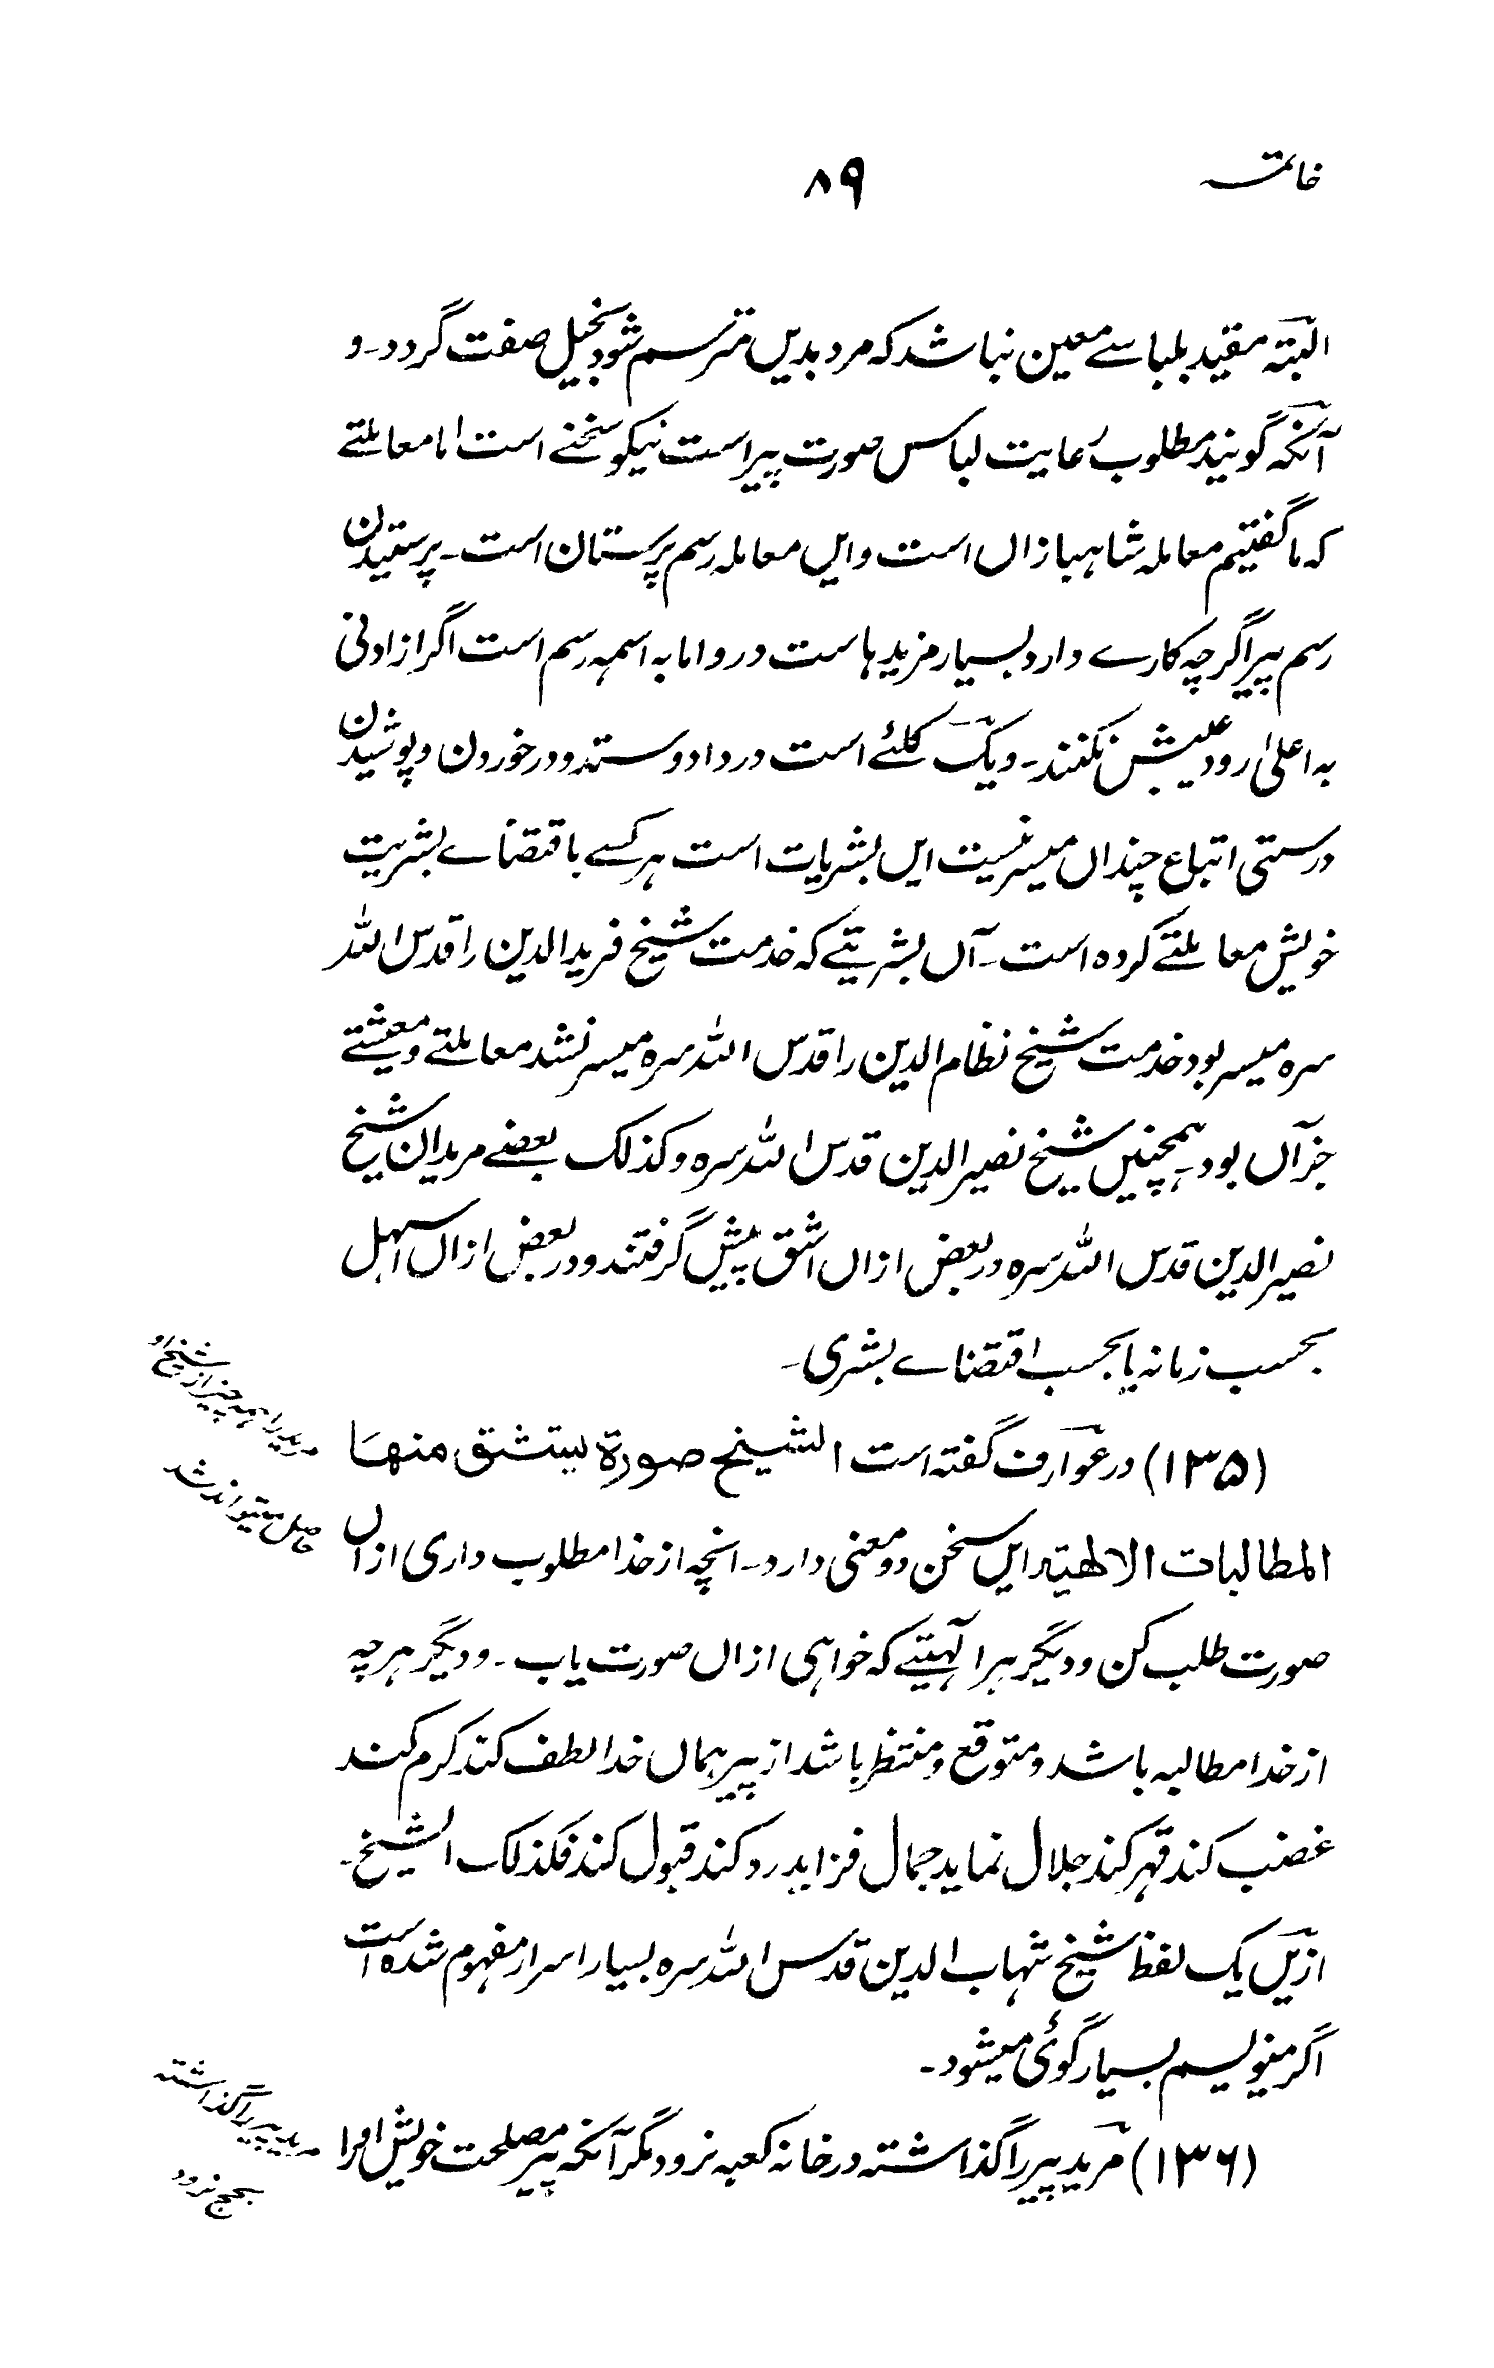 خاتمہ
۸۹
البتہ مقید بلباسے معین نباشد کہ مرد بدیں مترسم شود بخیل صفت گردد۔ و
آنکہ گویند مطلوب رعایت لباس صورت پیر است نیکو سخنے است اما معاملتے
کہ ما گفتیم معاملہ شاہبازاں است وایں معاملہ رسم پرستان است۔ پرستیدن
رسم پیر اگرچہ کارے دارد بسیار مزیدہاست درو اما بہ اسمہ رسم است اگر از ادنی
بہ اعلیٰ رود عیبش نکنند۔ ویک کلئے است در داد و ستد و در خوردن و پوشیدن
درستی اتباع چنداں میسر نیست ایں بشریات است ہر کسے باقتضاے بشریت
خویش معاملتے کردہ است۔ آں بشریتے کہ خدمت شیخ فرید الدین را قدس اللہ
سرہ میسر بود خدمت شیخ نظام الدین را قدس اللہ سرہ میسر نشد معاملتے و معیشتے
جز آں بود۔ ہمچنیں شیخ نصیر الدین قدس اللہ سرہ وکذلک بعضے مریدان شیخ
نصیر الدین قدس اللہ سرہ در بعض ازاں اشق پیش گرفتند و در بعض ازاں اسہل
بحسب زمانہ یا بحسب اقتضاے بشری۔
مرید را ہمہ چیز از شیخ او
حاصل میتواند شد
(۱۳۵) در عوارف گفتہ است الشیخ صورة یستشق منها
المطالبات الالهیة ایں سخن دو معنی دارد۔ انچہ از خدا مطلوب داری ازاں
صورت طلب کن و دیگر ہر الٰہیتے کہ خواہی ازاں صورت یاب۔ و دیگر ہرچہ
از خدا مطالبہ باشد و متوقع و منتظر باشد از پیر ہماں خدا لطف کند کرم کند
غضب کند قہر کند جلال نماید جمال فزاید رد کند قبول کند فکذلک الشیخ۔
ازیں یک لفظ شیخ شہاب الدین قدس اللہ سرہ بسیار اسرار مفہوم شدہ است
اگر مینویسم بسیار گوئی میشود۔
مرید پیر را گذاشتہ
بحج نرود
(۱۳۶) مرید پیر را گذاشتہ در خانہ کعبہ نرود مگر آنکہ پیر مصلحت خویش اورا